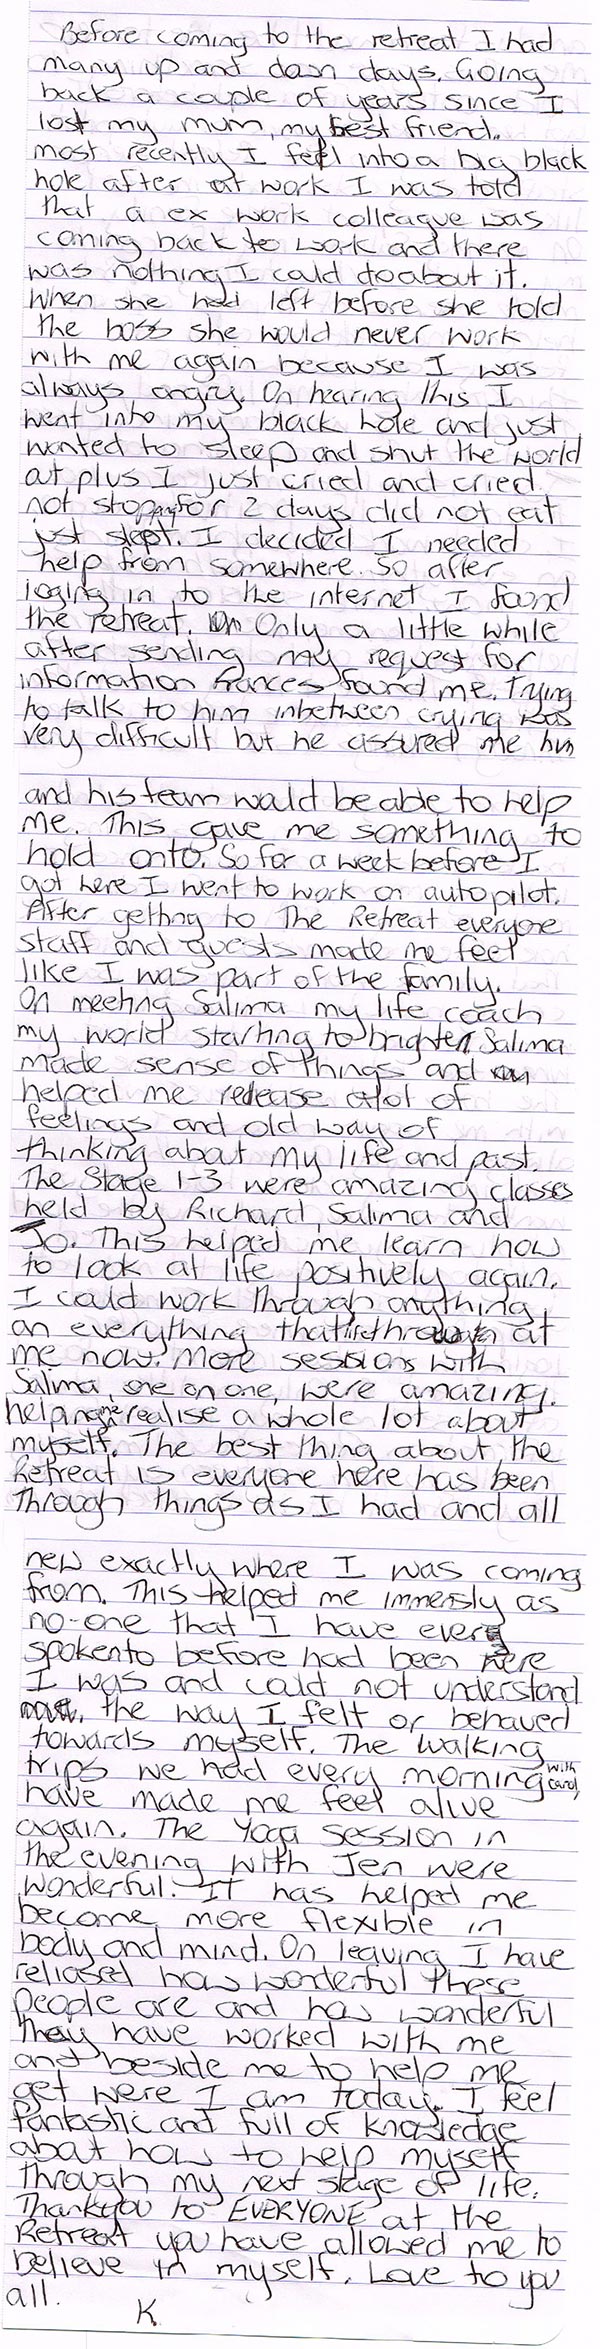 Before coming to the retreat I had
many up and down days. Going
back a couple of years since I
lost my mum, my best friend.
most recently I feel into a big black
hole after at work I was told
that a ex work colleague was
coming back to work and there
was nothing I could do about it.
When she had left before she told
the boss she would never work
with me again because I was
always angry. On hearing this I
went into my black hole and just
wanted to sleep and shut the world
out plus I just cried and cried
not stopping for 2 days did not eat
just slept. I decided I needed
help from somewhere. So after
loging in to the internet I found
the retreat. Only a little while
after sending my request for
information frances found me. Trying
to talk to him inbetween crying was
very difficult but he assured me him
and his team would be able to help
me. This gave me something to
hold onto. So for a week before I
got here I went to work on autopilot.
After getting to The Retreat everyone
staff and guests made me feel
like I was part of the family.
On meeting Salima my life coach
my world starting to brighten Salima
made sense of things and
helped me release alot of
feelings and old way of
thinking about my life and past.
The Stage 1-3 were amazing classes
held by Richard, Salima and
Jo. This helped me learn how
to look at life positively again.
I could work through anything
an everything that at
me now. More sessions with
Salima, one on one, were amazing.
helping me realise a whole lot about
myself. The best thing about the
Retreat is everyone here has been
through things as I had and all
new exactly where I was coming
from. This helped me immensly as
no-one that I have every
spoken to before had been were
I was and could not understand
the way I felt or behaved
towards myself. The walking
trips we had every morning with carol,
have made me feel alive
again. The Yoga session in
the evening with Jen were
wonderful. It has helped me
become more flexible in
body and mind. On leaving I have
reliased how wonderful these
people are and how wonderful
they have worked with me
and beside me to help me
get were I am today. I feel
fantastic and full of knowledge
about how to help myself
through my next stage of life.
Thankyou to EVERYONE at the
Retreat you have allowed me to
believe in myself. Love to you
all. K